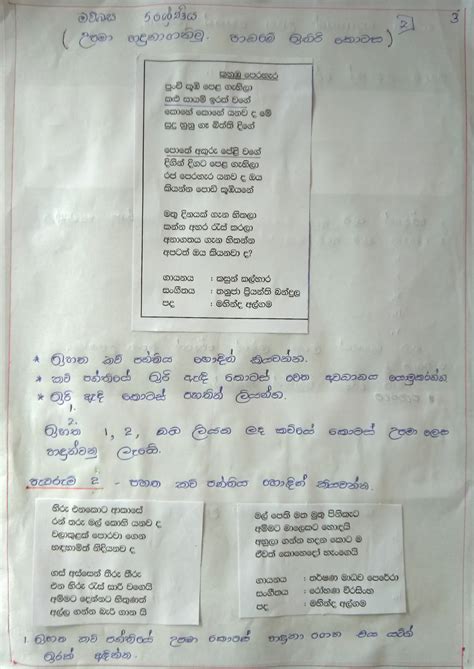 මව්බස 5 ශ්‍රේණිය
3
2
( උපමා හඳුනාගනිමු. පැවරුම ඉරිඇඳි කොටස )
කුහුඹු පෙරහැර
පුංචි කූඹි පෙළ ගැහිලා
කළු සායම් ඉරක් වගේ
කොහේ කොහේ යනව ද මේ
සුදු හුනු ගෑ බිත්ති දිගේ
පොතේ අකුරු පේළි වගේ
දිගින් දිගට පෙළ ගැහිලා
රජ පෙරහැර යනව ද ඔය
කියන්න පොඩි කූඹියනේ
මතු දිනයක් ගැන හිතලා
කන්න අහර රැස් කරලා
අනාගතය ගැන හිතන්න
අපටත් ඔය කියනවා ද?
ගායනය : කසුන් කල්හාර
සංගීතය : තනුජා ප්‍රියන්ති බන්දුල
පද : මහින්ද අල්ගම
* ඉහත කවි පන්තිය හොඳින් කියවන්න.
* කවි පන්තියේ ඉරි ඇඳි කොටස් වෙත අවධානය යොමුකරන්න
* ඉරි ඇඳි කොටස් පහතින් ලියන්න.
1.
2.
ඉහත 1, 2, යන ලියන ලද කවියේ කොටස් උපමා ලෙස
හඳුන්වනු ලැබේ.
පැවරුම 2 - පහත කවි පන්තිය හොඳින් කියවන්න.
හිරු එනකොට ආකාසේ
රන් තරු මල් කොහි යනව ද
වලාකුළක් පොරවා ගෙන
හඳහාමිත් නිදියනව ද
ගස් අස්සෙන් තිරු තීරු
එන හිරු රැස් සාරි වගෙයි
අම්මට දෙන්නට හිතුණත්
අල්ල ගන්න බැරි ගාන සි
මල් පෙති මත මුතු පිනිකැට
අම්මට මාලෙකට හොඳයි
අහුලා ගන්න හදන කොට ම
ඒවත් කොහෙදෝ හැංගෙයි
ගායනය : තර්ෂණ මාධව පෙරේරා
සංගීතය : රෝහණ වීරසිංහ
පද : මහින්ද අල්ගම
1. ඉහත කවි පන්තියේ උපමා කොටස් හඳුනා ගෙන එය යටින්
ඉරක් අඳින්න.